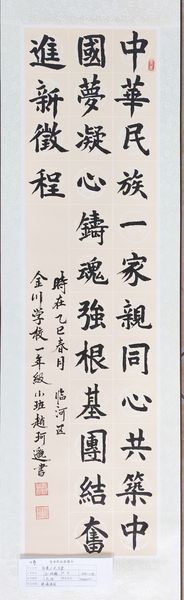 中華民族一家親同心共築中
國夢凝心鑄魂強根基團結奮
進新徵程
時在乙巳春月 臨河區
金川学校一年級小班趙珂邈書